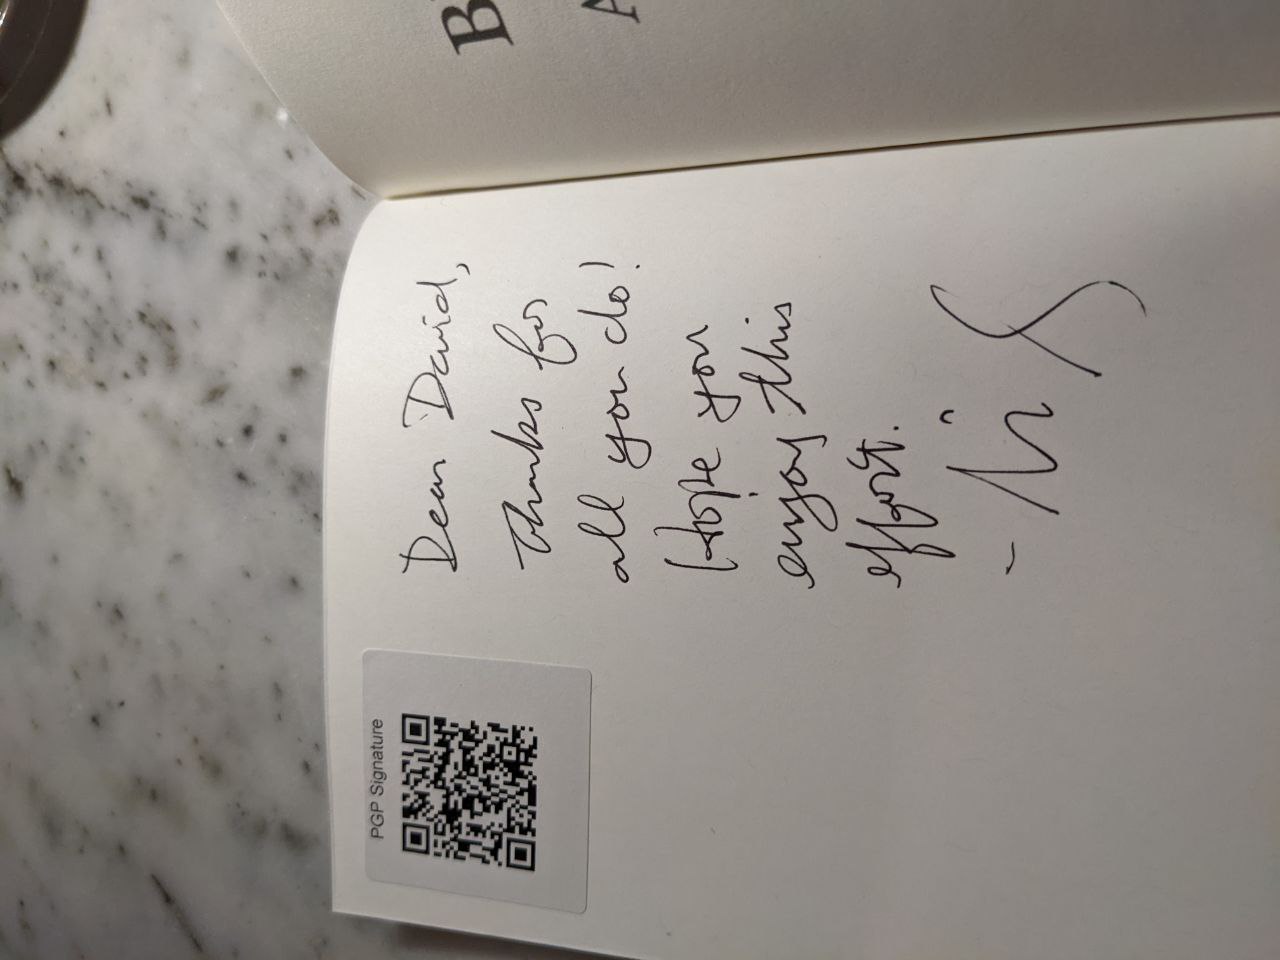 PGP Signature
Dear David,
Thanks for
all you do!
Hope you
enjoy this
effort.
B
A